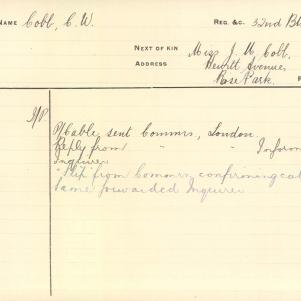 NAME Cobb, C. W. REG. &C. 32nd B
NEXT OF KIN Miss J. M. Cobb,
ADDRESS Hewitt Avenue,
Rose Park.
Cable sent Commrs, London.
Reply from " " Inform
Inquirer
"Slip" from Commrs confirming ca
same forwarded Inquirer